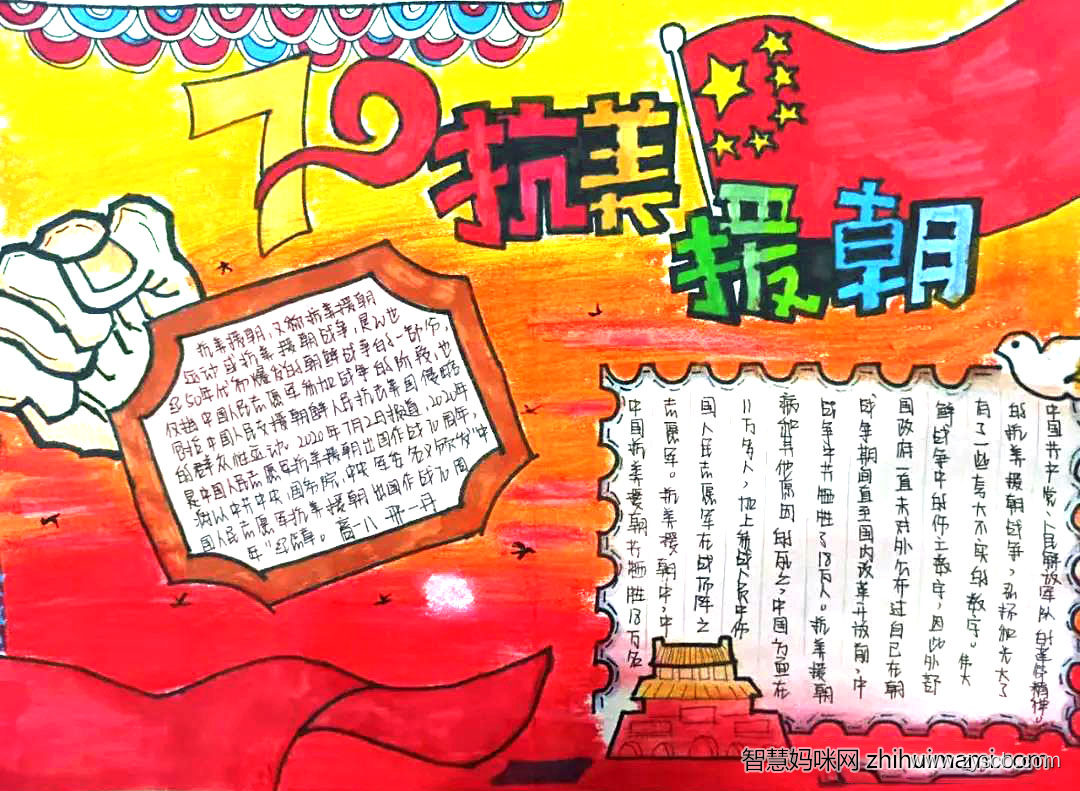 70
抗美
援朝
抗美援朝,又称抗美援朝
运动或抗美援朝战争,是20世
纪50年代初爆发的朝鲜战争的一部分,
仅指中国人民志愿军参加战争的阶段,也
包括中国人民支援朝鲜人民抗击美国侵略
的群众性运动。2020年7月2日报道,2020年
是中国人民志愿军抗美援朝出国作战70周年,
中共中央、国务院、中央军委名义颁发"中
国人民志愿军抗美援朝出国作战70周
年"纪念章。 高一八 邢一丹
中国抗美援朝共牺牲18万名
志愿军。抗美援朝中,中
国人民志愿军在战场阵亡
11万多人,加上
病和其他原因的死亡,中国
战争中共牺牲了18万人。抗美援朝
战争期间直至国内改革开放前,中
国政府一直未对外公布过自己在朝
鲜战争中的伤亡数字,因此外部
有了一些夸大不实的数字。伟大
的抗美援朝战争,弘扬和光大了
中国共产党、人民解放军队的革命精神。
智慧妈咪网 zhihuimami.com